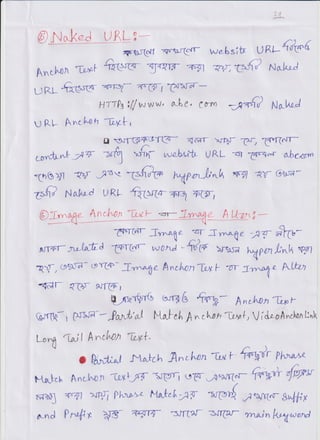 ⑤ Naked URL:-
কখনো কখনো website URL টিকেও
Anchor Text হিসেবে ব্যবহার করা হয়, সেটি Naked
URL হিসেবে কাজ করে, যেমন-
HTTP://www.abc.com একটি Naked
URL Anchor Text,
বলা যায় যে, কোনো
content এর মধ্যে যদি website URL বা কেবল abc.com
দেওয়া হয় এবং সেটিকে hyperlink করা হয় তখন
সেটি Naked URL হিসেবে কাজ করে,
⑥ Image Anchor Text বা Image Alter:-
কোনো Image বা Image এর নীচে
থাকা related কোনো word টিকে যখন hyperlink করা
হয়, তখন তাকে Image Anchor Text বা Image Alter
বলা হয়ে থাকে,
এছাড়াও আরও কিছু Anchor Text
আছে, যেমন- Partial Match Anchor Text, Video Anchor Link
Long Tail Anchor Text.
Partial Match Anchor Text কিছুটা Phrase
Match Anchor Text এর মতো, তবে এখানে কিছুটা
লক্ষ্য করা যায়, Phrase Match এর মতোই এখানে Suffix
and Prefix যুক্ত করার সাথে সাথে main keyword